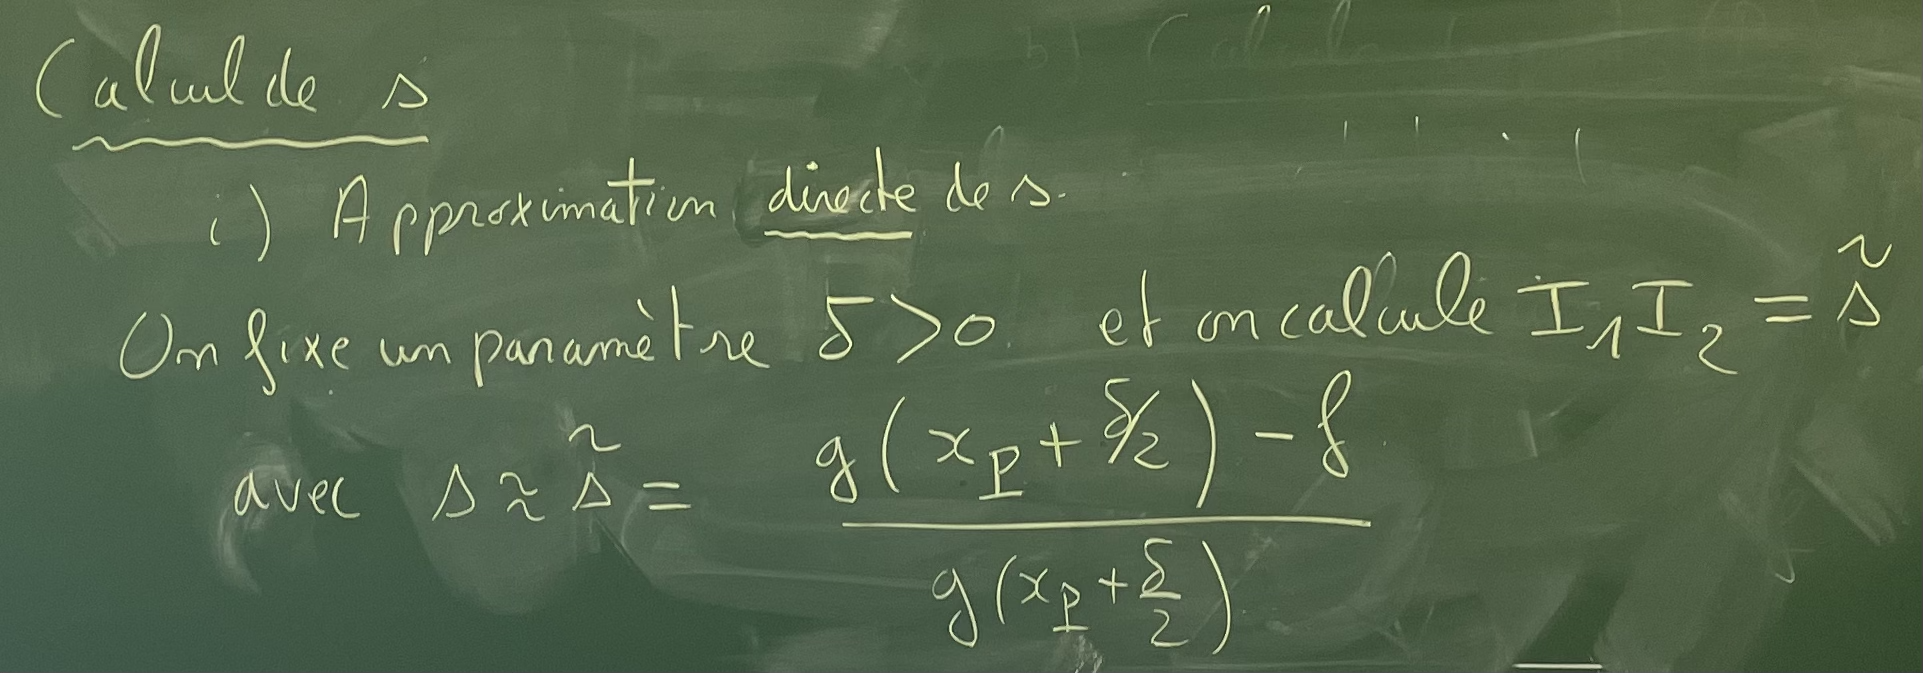 Calcul de s
i) Approximation directe de s.
On fixe un paramètre δ>0 et on calcule I₁I₂ = s̃
avec s ≈ s̃ = (g(x_P + δ/2) - f) / (g(x_P + δ/2))